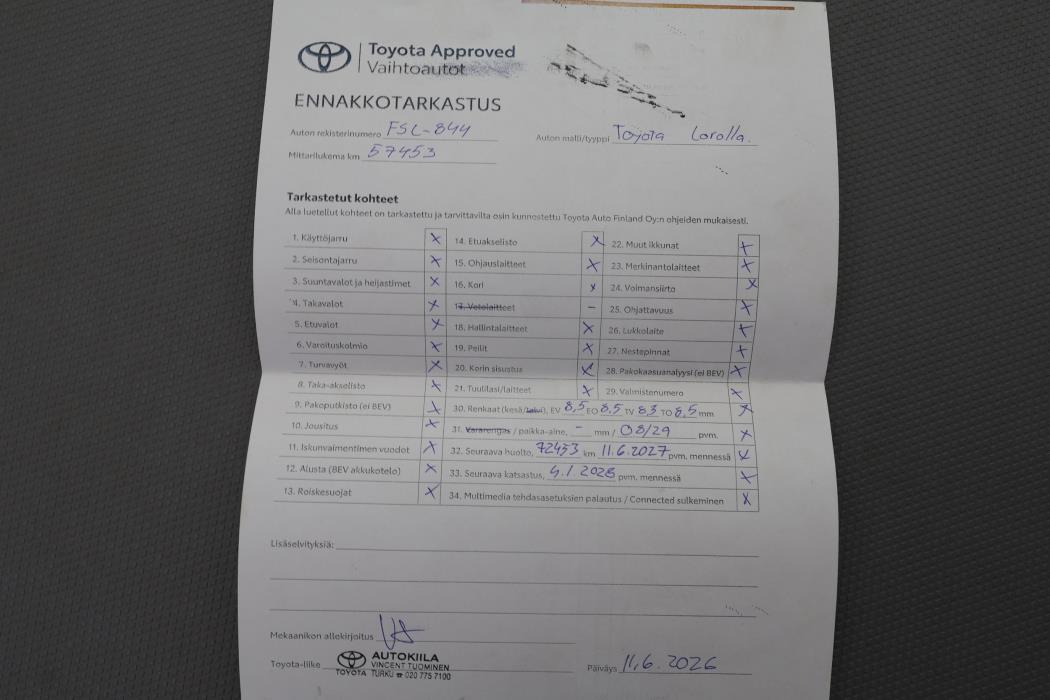 Toyota Approved
Vaihtoautot
ENNAKKOTARKASTUS
Auton rekisterinumero FSL-844 Auton malli/tyyppi Toyota Corolla.
Mittarilukema km 57453
Tarkastetut kohteet
Alla luetellut kohteet on tarkastettu ja tarvittavilta osin kunnostettu Toyota Auto Finland Oy:n ohjeiden mukaisesti.
1. Käyttöjarru X 14. Etuakselisto X 22. Muut ikkunat X
2. Seisontajarru X 15. Ohjauslaitteet X 23. Merkinantolaitteet X
3. Suuntavalot ja heijastimet X 16. Kori X 24. Voimansiirto X
4. Takavalot X 17. Vetolaitteet – 25. Ohjattavuus X
5. Etuvalot X 18. Hallintalaitteet X 26. Lukkolaite X
6. Varoituskolmio X 19. Peilit X 27. Nestepinnat X
7. Turvavyöt X 20. Korin sisustus X 28. Pakokaasuanalyysi (ei BEV) X
8. Taka-akselisto X 21. Tuulilasi/laitteet X 29. Valmistenumero X
9. Pakoputkisto (ei BEV) X 30. Renkaat (kesä/talvi), EV 8,5 EO 8,5 TV 8,5 TO 8,5 mm X
10. Jousitus X 31. Vararengas / paikka-aine, – mm / 08/29 pvm. X
11. Iskunvaimentimien vuodot X 32. Seuraava huolto, 72453 km 11.6.2027 pvm. mennessä X
12. Alusta (BEV akkukotelo) X 33. Seuraava katsastus, 4.1.2028 pvm. mennessä X
13. Roiskesuojat X 34. Multimedia tehdasasetuksien palautus / Connected sulkeminen X
Lisäselvityksiä:
Mekaanikon allekirjoitus
Toyota-liike AUTOKIILA
VINCENT TUOMINEN
TOYOTA TURKU ☎ 020 775 7100
Päiväys 11.6.2026